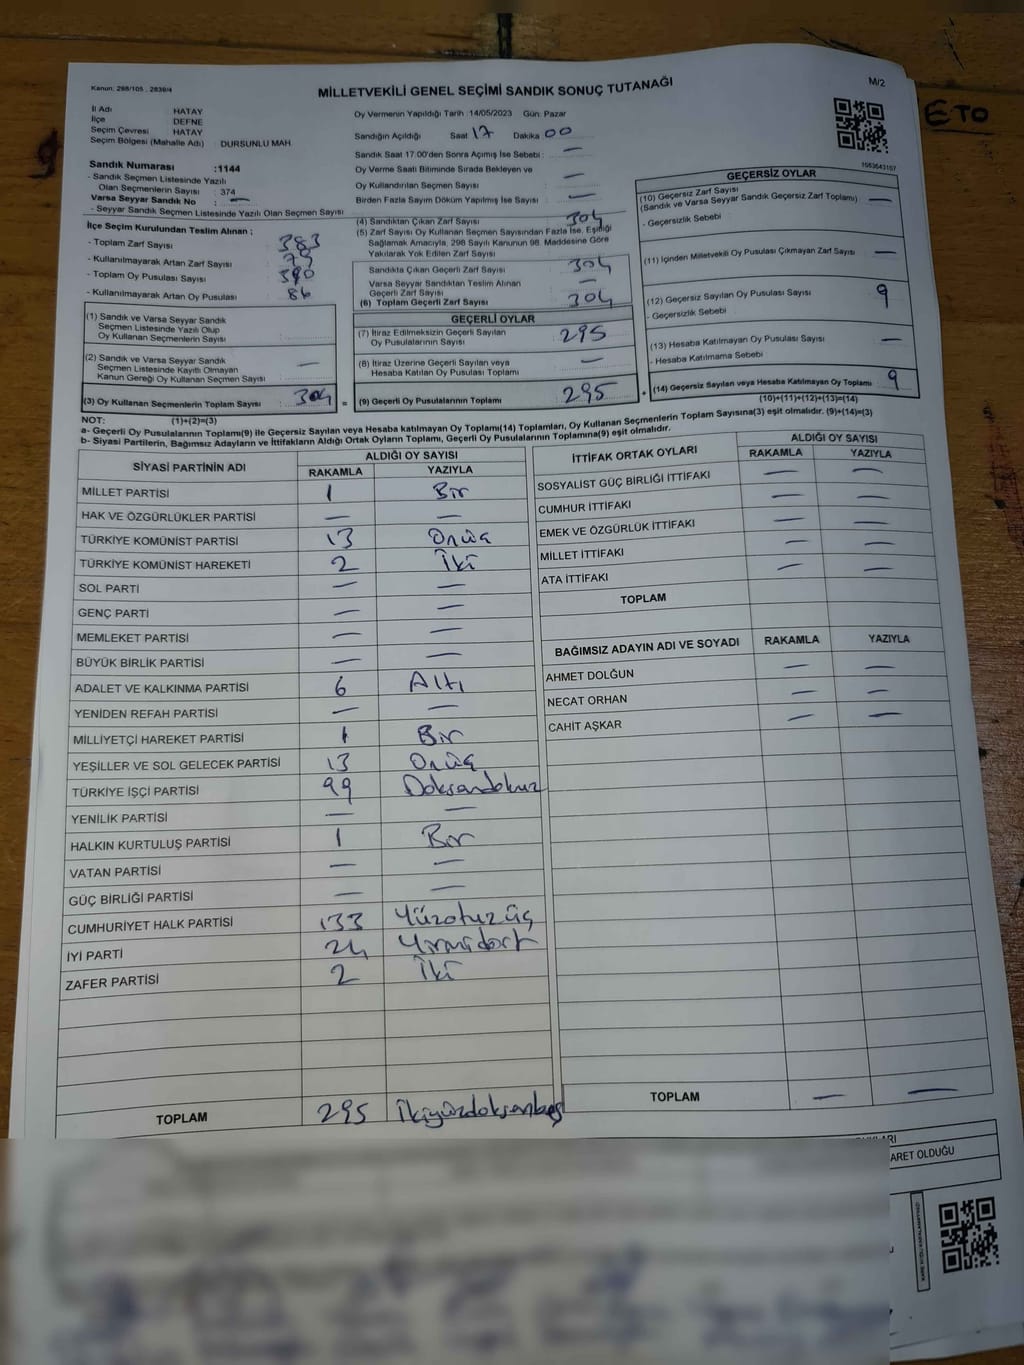 Kanun: 298/105 , 2839/4
MİLLETVEKİLİ GENEL SEÇİMİ SANDIK SONUÇ TUTANAĞI
M/2
ETO
İl Adı HATAY
İlçe DEFNE
Seçim Çevresi HATAY
Seçim Bölgesi (Mahalle Adı) : DURSUNLU MAH.
Sandık Numarası :1144
- Sandık Seçmen Listesinde Yazılı
Olan Seçmenlerin Sayısı : 374
Varsa Seyyar Sandık No : —
- Seyyar Sandık Seçmen Listesinde Yazılı Olan Seçmen Sayısı
İlçe Seçim Kurulundan Teslim Alınan ;
- Toplam Zarf Sayısı 383
- Kullanılmayarak Artan Zarf Sayısı : 79
- Toplam Oy Pusulası Sayısı : 390
- Kullanılmayarak Artan Oy Pusulası : 86
(1) Sandık ve Varsa Seyyar Sandık
Seçmen Listesinde Yazılı Olup
Oy Kullanan Seçmenlerin Sayısı :
(2) Sandık ve Varsa Seyyar Sandık
Seçmen Listesinde Kayıtlı Olmayan —
Kanun Gereği Oy Kullanan Seçmen Sayısı
(3) Oy Kullanan Seçmenlerin Toplam Sayısı : 304 =
Oy Vermenin Yapıldığı Tarih 14/05/2023 Gün: Pazar
Sandığın Açıldığı Saat 17 Dakika 00
Sandık Saat 17:00'den Sonra Açımış İse Sebebi : —
Oy Verme Saati Bitiminde Sırada Bekleyen ve
Oy Kullandırılan Seçmen Sayısı —
Birden Fazla Sayım Döküm Yapılmış İse Sayısı : —
(4) Sandıktan Çıkan Zarf Sayısı 304
(5) Zarf Sayısı Oy Kullanan Seçmen Sayısından Fazla İse, Eşitliği
Sağlamak Amacıyla, 298 Sayılı Kanunun 98. Maddesine Göre
Yakılarak Yok Edilen Zarf Sayısı
Sandıkta Çıkan Geçerli Zarf Sayısı 304
Varsa Seyyar Sandıktan Teslim Alınan
Geçerli Zarf Sayısı —
(6) Toplam Geçerli Zarf Sayısı 304
GEÇERLİ OYLAR
(7) İtiraz Edilmeksizin Geçerli Sayılan
Oy Pusulalarının Sayısı : 295
(8) İtiraz Üzerine Geçerli Sayılan veya
Hesaba Katılan Oy Pusulası Toplamı : —
(9) Geçerli Oy Pusulalarının Toplamı : 295 +
1553643157
GEÇERSİZ OYLAR
(10) Geçersiz Zarf Sayısı
(Sandık ve Varsa Seyyar Sandık Geçersiz Zarf Toplamı) —
- Geçersizlik Sebebi
(11) İçinden Milletvekili Oy Pusulası Çıkmayan Zarf Sayısı —
(12) Geçersiz Sayılan Oy Pusulası Sayısı 9
- Geçersizlik Sebebi
(13) Hesaba Katılmayan Oy Pusulası Sayısı —
- Hesaba Katılmama Sebebi
(14) Geçersiz Sayılan veya Hesaba Katılmayan Oy Toplamı 9
(10)+(11)+(12)+(13)=(14)
NOT: (1)+(2)=(3)
a- Geçerli Oy Pusulalarının Toplamı(9) ile Geçersiz Sayılan veya Hesaba katılmayan Oy Toplamı(14) Toplamları, Oy Kullanan Seçmenlerin Toplam Sayısına(3) eşit olmalıdır. (9)+(14)=(3)
b- Siyasi Partilerin, Bağımsız Adayların ve İttifakların Aldığı Ortak Oyların Toplamı, Geçerli Oy Pusulalarının Toplamına(9) eşit olmalıdır.
SİYASİ PARTİNİN ADI ALDIĞI OY SAYISI
RAKAMLA YAZIYLA
MİLLET PARTİSİ 1 Bir
HAK VE ÖZGÜRLÜKLER PARTİSİ — —
TÜRKİYE KOMÜNİST PARTİSİ 13 Onüç
TÜRKİYE KOMÜNİST HAREKETİ 2 İki
SOL PARTİ — —
GENÇ PARTİ — —
MEMLEKET PARTİSİ — —
BÜYÜK BİRLİK PARTİSİ — —
ADALET VE KALKINMA PARTİSİ 6 Altı
YENİDEN REFAH PARTİSİ — —
MİLLİYETÇİ HAREKET PARTİSİ 1 Bir
YEŞİLLER VE SOL GELECEK PARTİSİ 13 Onüç
TÜRKİYE İŞÇİ PARTİSİ 99 Doksandokuz
YENİLİK PARTİSİ — —
HALKIN KURTULUŞ PARTİSİ 1 Bir
VATAN PARTİSİ — —
GÜÇ BİRLİĞİ PARTİSİ — —
CUMHURİYET HALK PARTİSİ 133 Yüzotuzüç
İYİ PARTİ 24 Yirmidört
ZAFER PARTİSİ 2 İki
TOPLAM 295 İkiyüzdoksanbeş
İTTİFAK ORTAK OYLARI ALDIĞI OY SAYISI
RAKAMLA YAZIYLA
SOSYALİST GÜÇ BİRLİĞİ İTTİFAKI — —
CUMHUR İTTİFAKI — —
EMEK VE ÖZGÜRLÜK İTTİFAKI — —
MİLLET İTTİFAKI — —
ATA İTTİFAKI — —
TOPLAM
BAĞIMSIZ ADAYIN ADI VE SOYADI RAKAMLA YAZIYLA
AHMET DOLĞUN — —
NECAT ORHAN — —
CAHİT AŞKAR — —
TOPLAM — —
ARET OLDUĞU